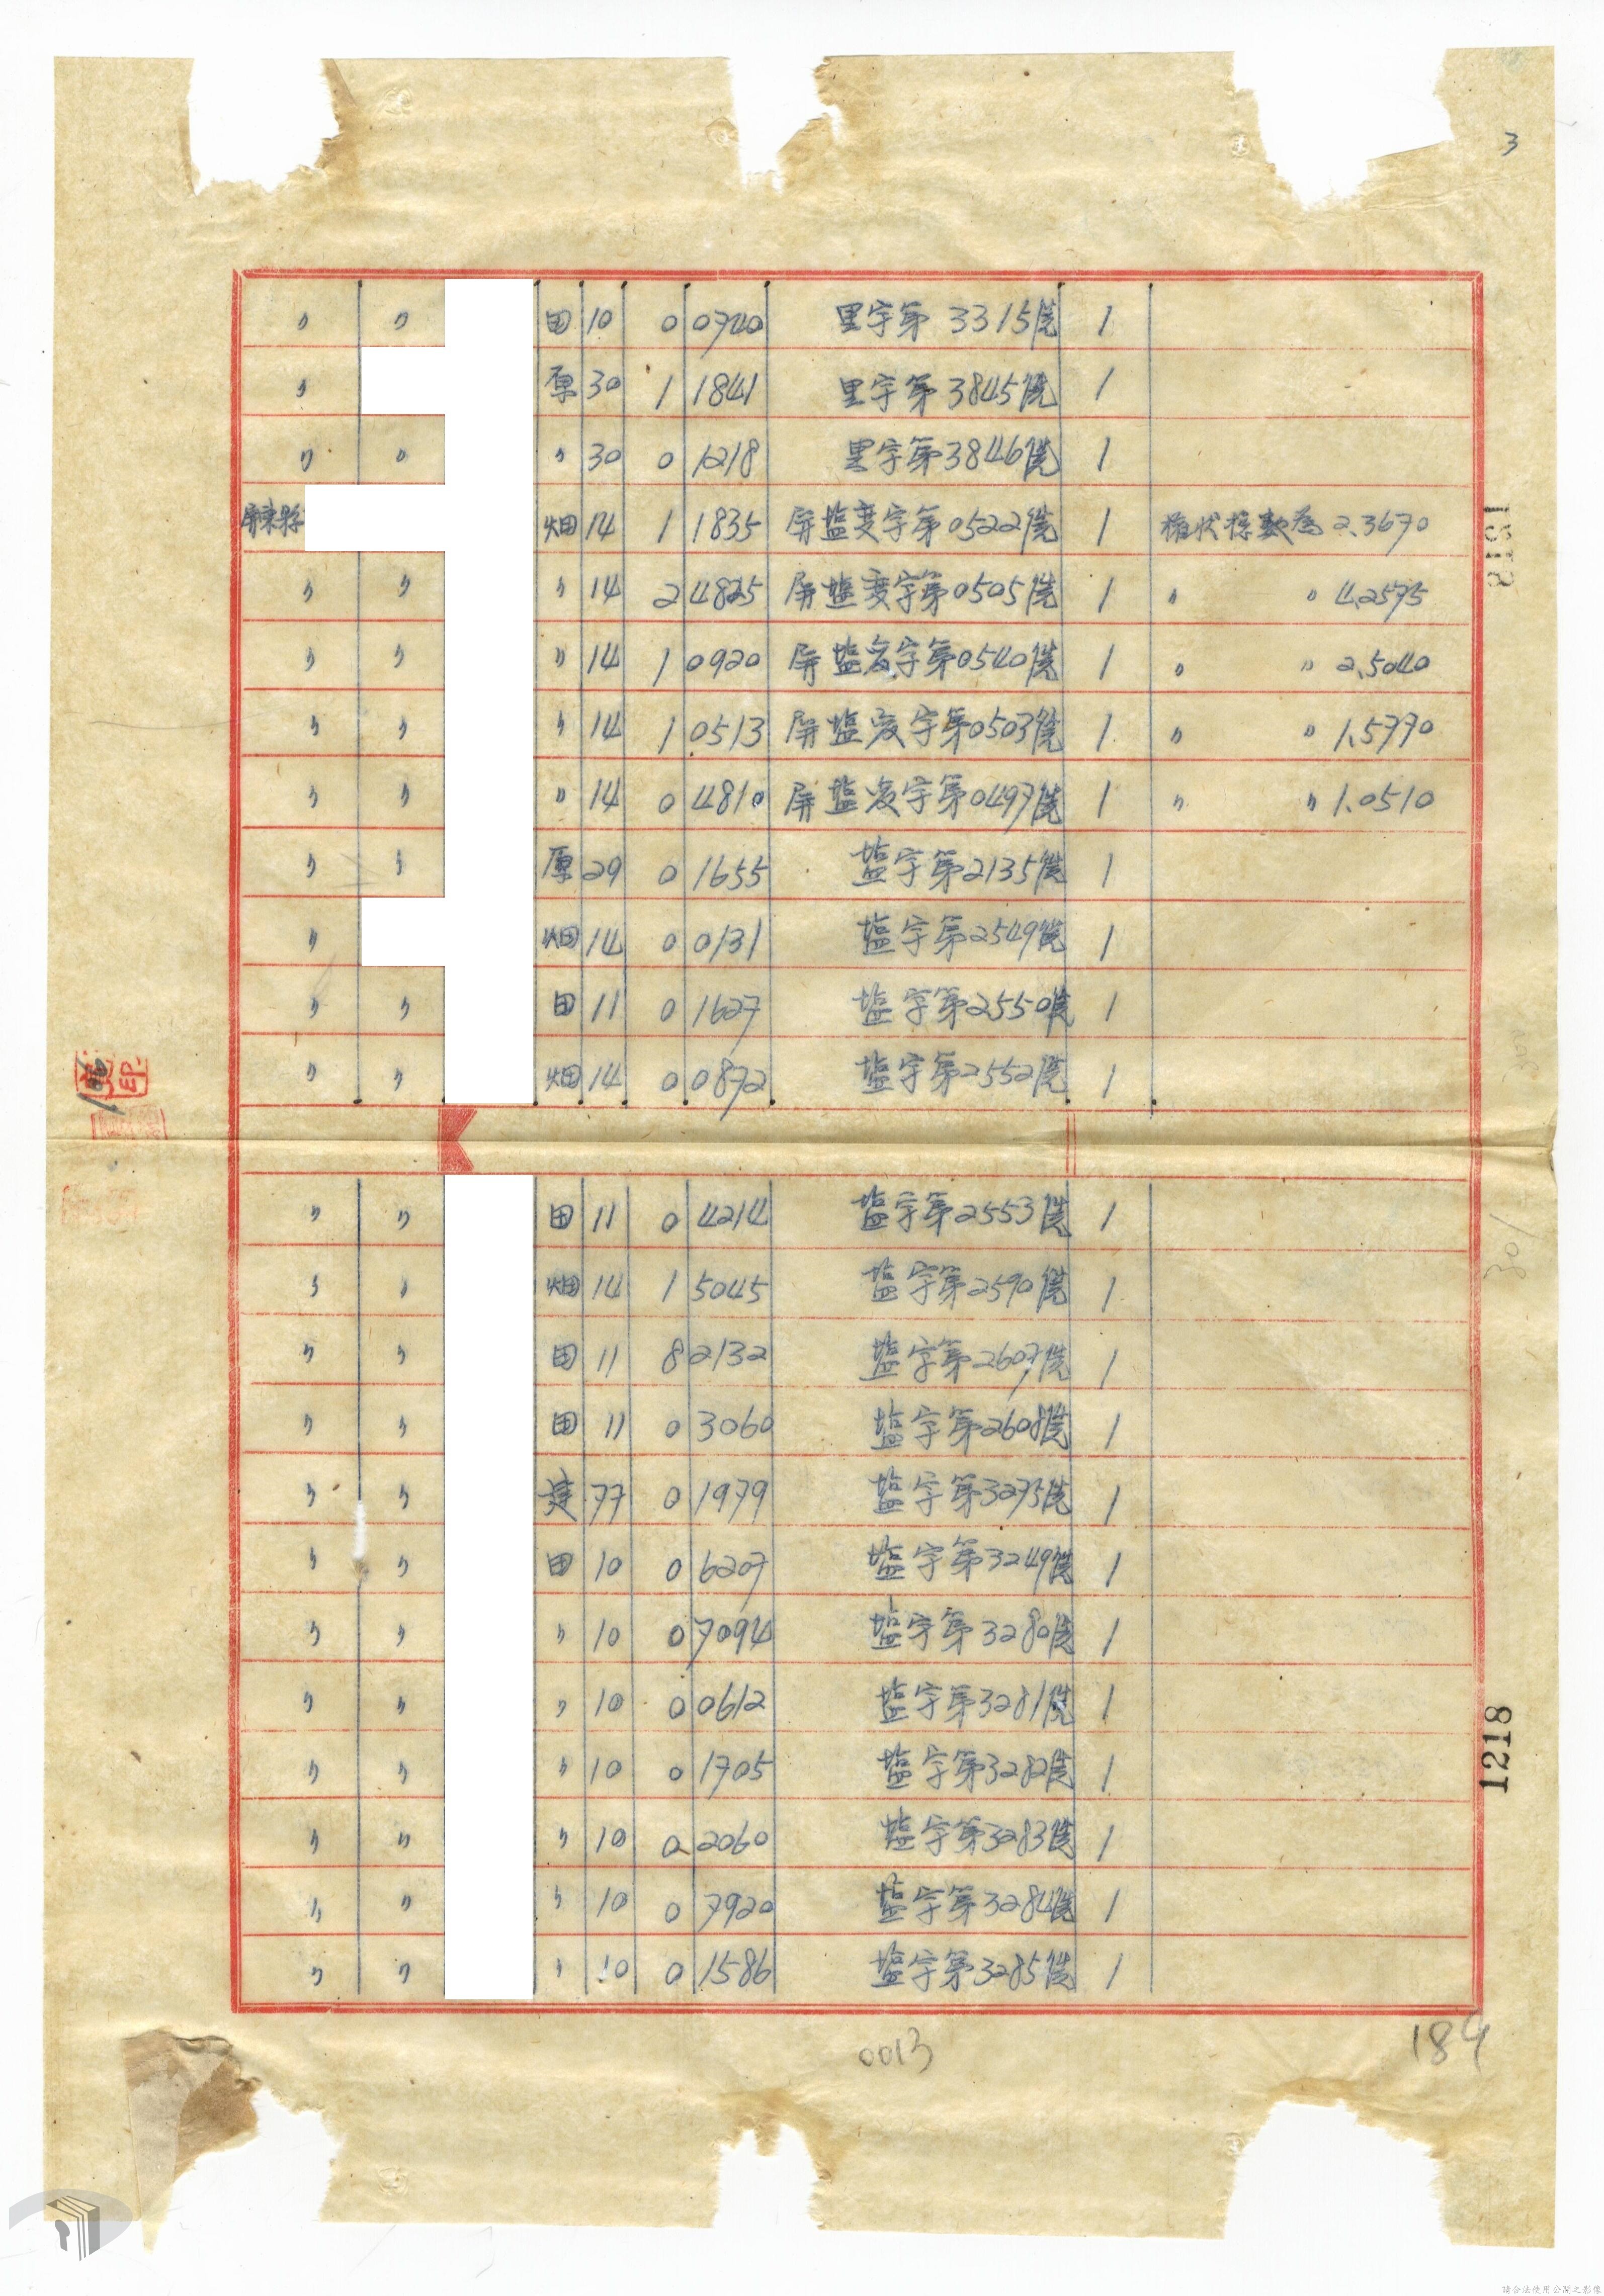 3
〃 〃 田 10 0 0740 里字第3315號 1
〃 原 30 1 1841 里字第3845號 1
〃 〃 〃 30 0 1218 里字第3846號 1
屏東縣 畑 14 1 1835 屏塩変字第0522號 1 権状採数為 2.3670
〃 〃 〃 14 2 4825 屏塩変字第0505號 1 〃 〃 4.2575
〃 〃 〃 14 1 0920 屏塩変字第0540號 1 〃 〃 2.5040
〃 〃 〃 14 1 0513 屏塩変字第0503號 1 〃 〃 1.5770
〃 〃 〃 14 0 4810 屏塩変字第0497號 1 〃 〃 1.0510
〃 〃 原 29 0 1655 塩字第2135號 1
〃 畑 14 0 0131 塩字第2549號 1
〃 〃 田 11 0 1627 塩字第2550號 1
〃 〃 畑 14 0 0872 塩字第2552號 1
〃 〃 田 11 0 4214 塩字第2553號 1
〃 〃 畑 14 1 5045 塩字第2590號 1
〃 〃 田 11 8 2132 塩字第2607號 1
〃 〃 田 11 0 3060 塩字第2608號 1
〃 〃 建 77 0 1979 塩字第3275號 1
〃 〃 田 10 0 6207 塩字第3249號 1
〃 〃 〃 10 0 7094 塩字第3280號 1
〃 〃 〃 10 0 0612 塩字第3281號 1
〃 〃 〃 10 0 1705 塩字第3282號 1
〃 〃 〃 10 0 2060 塩字第3283號 1
〃 〃 〃 10 0 7920 塩字第3284號 1
〃 〃 〃 10 0 1586 塩字第3285號 1
1218
1218
301
0013
189
請合法使用公開之影像